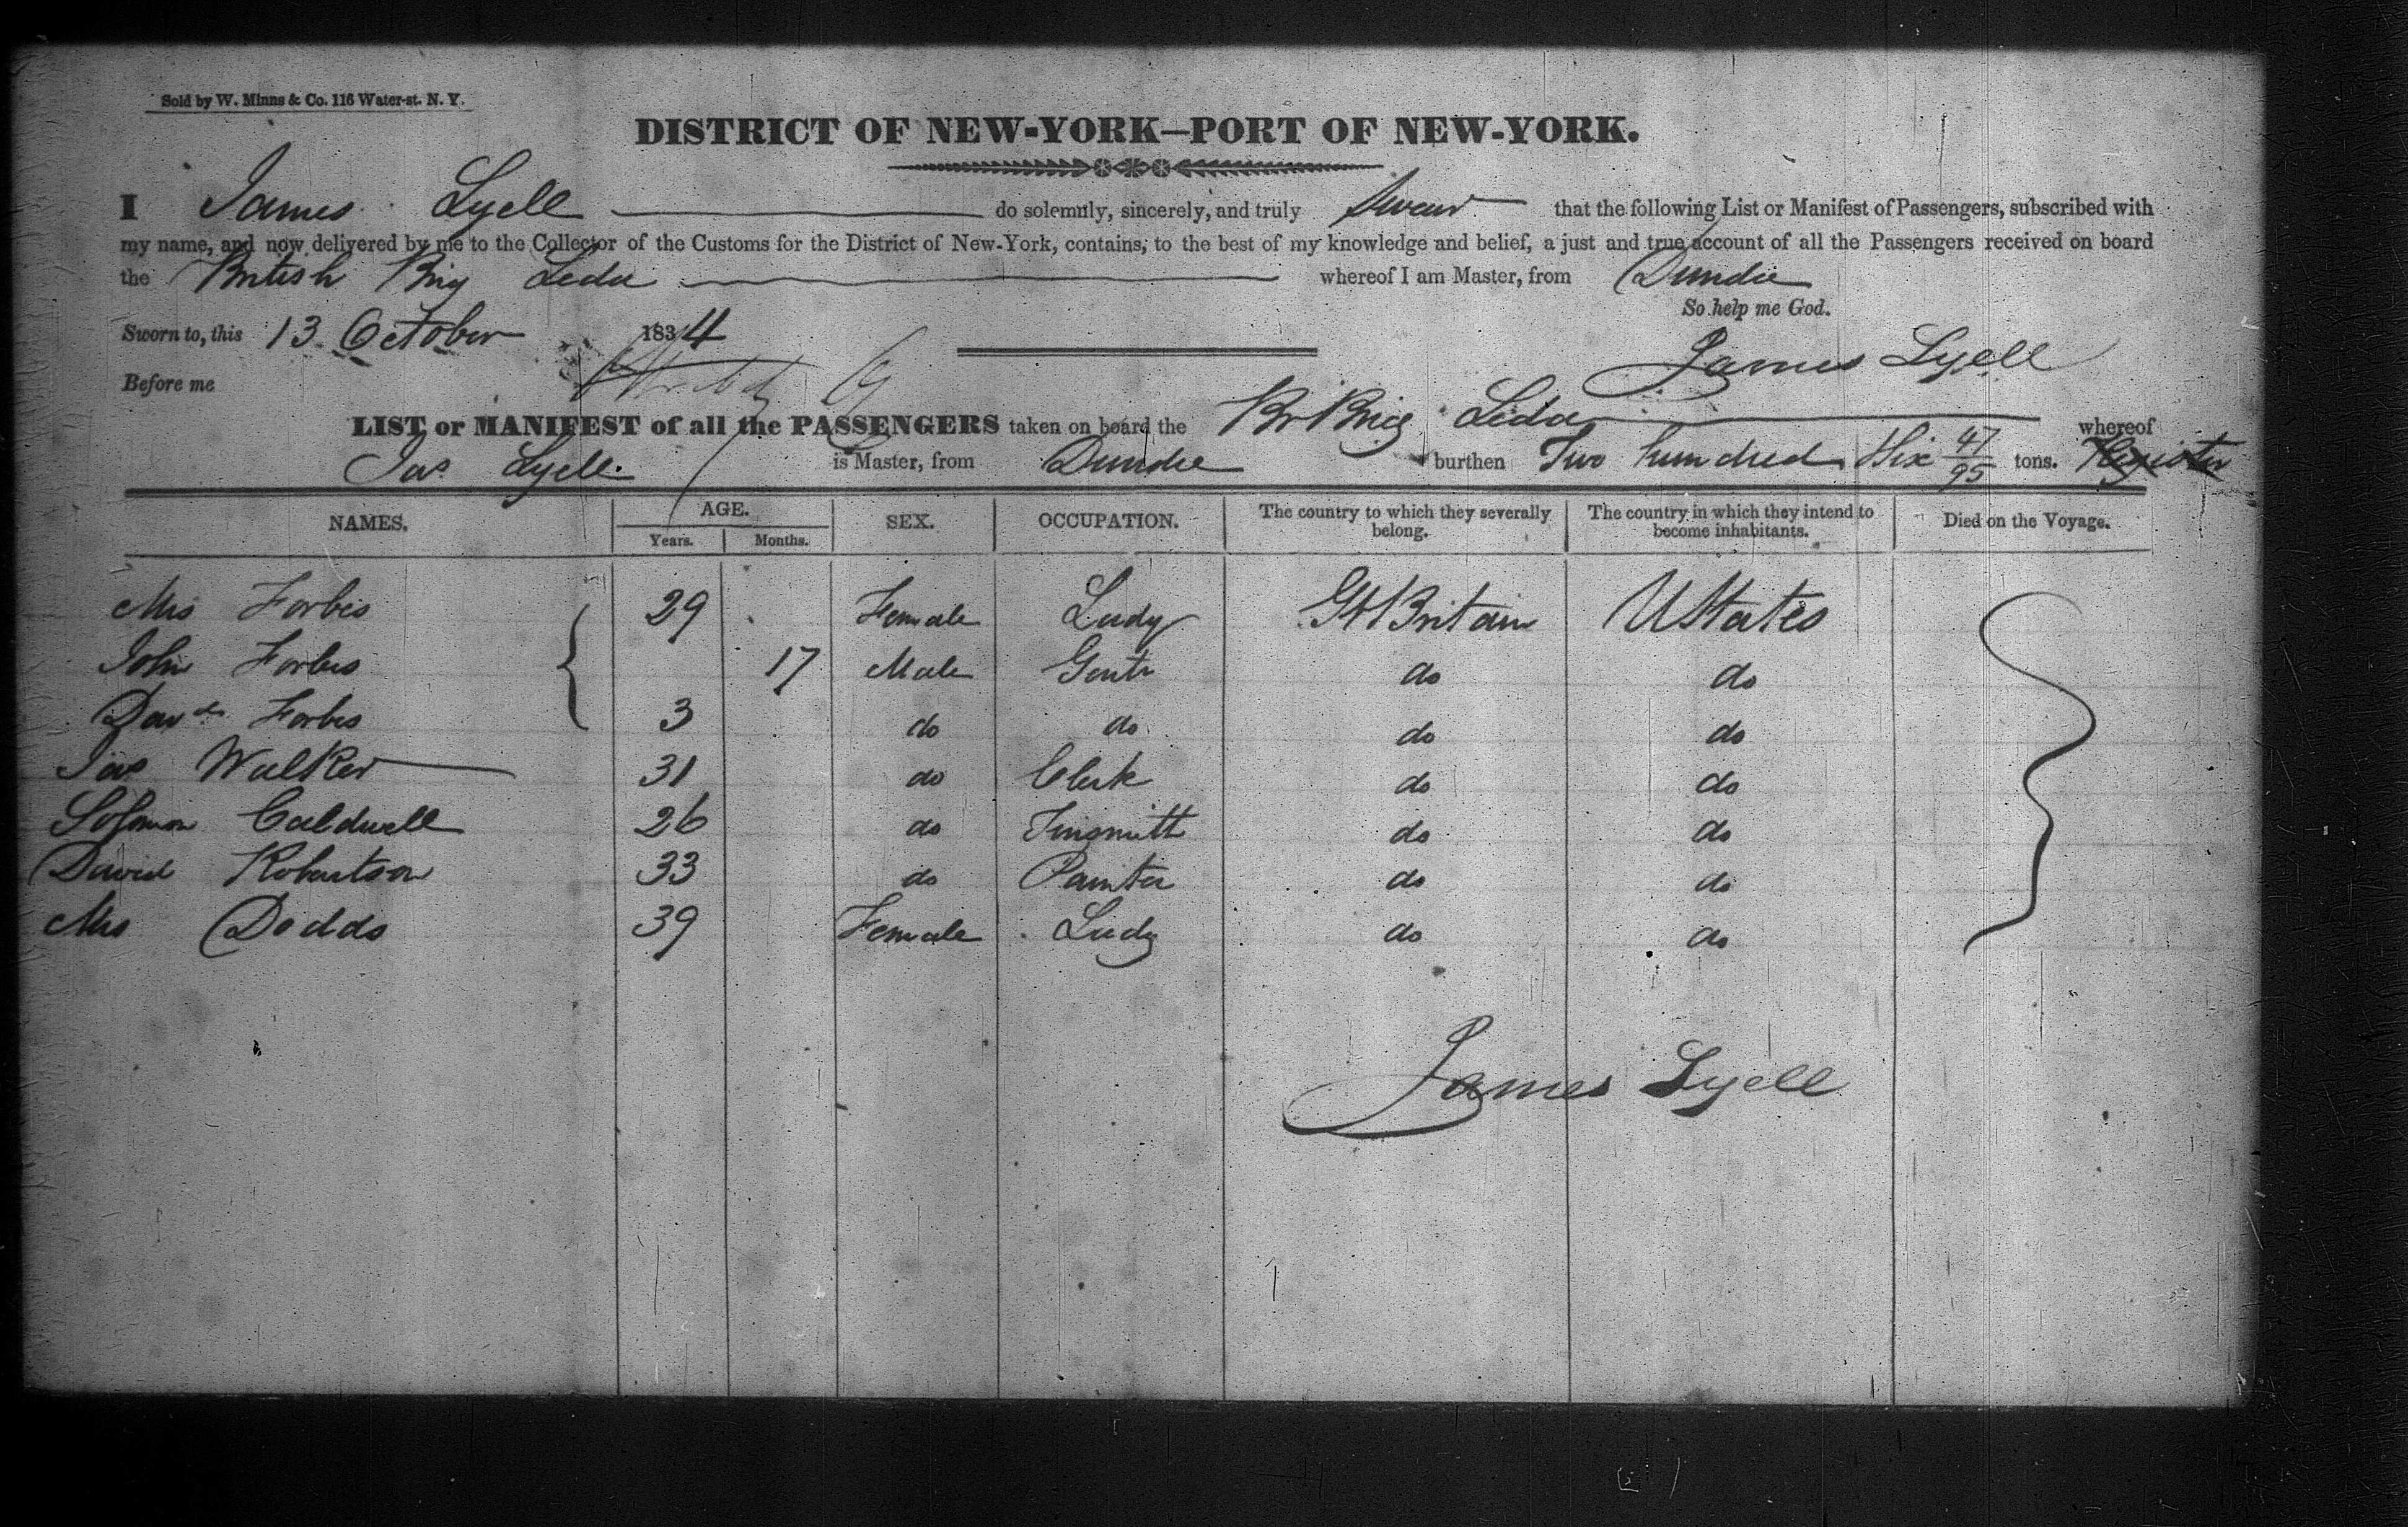 Sold by W. Minns & Co. 116 Water-st. N. Y.
DISTRICT OF NEW-YORK—PORT OF NEW-YORK.
I James Lyell do solemnly, sincerely, and truly Swear that the following List or Manifest of Passengers, subscribed with
my name, and now delivered by me to the Collector of the Customs for the District of New-York, contains, to the best of my knowledge and belief, a just and true account of all the Passengers received on board
the British Brig Leda whereof I am Master, from Dundee
So help me God.
Sworn to, this 13 October 1834
James Lyell
Before me
LIST or MANIFEST of all the PASSENGERS taken on board the Br Brig Leda whereof
Jas Lyell is Master, from Dundee burthen Two hundred Six 47/95 tons. Register
NAMES. AGE. SEX. OCCUPATION. The country to which they severally belong. The country in which they intend to become inhabitants. Died on the Voyage.
Years. Months.
Mrs Forbes 29 Female Lady Gt Britain UStates
John Forbes 17 Male Gentn do do
Davd Forbes 3 do do do do
Jas Walker 31 do Clerk do do
Solomon Caldwell 26 do Tinsmith do do
David Robertson 33 do Painter do do
Mrs Dodds 39 Female Lady do do
James Lyell